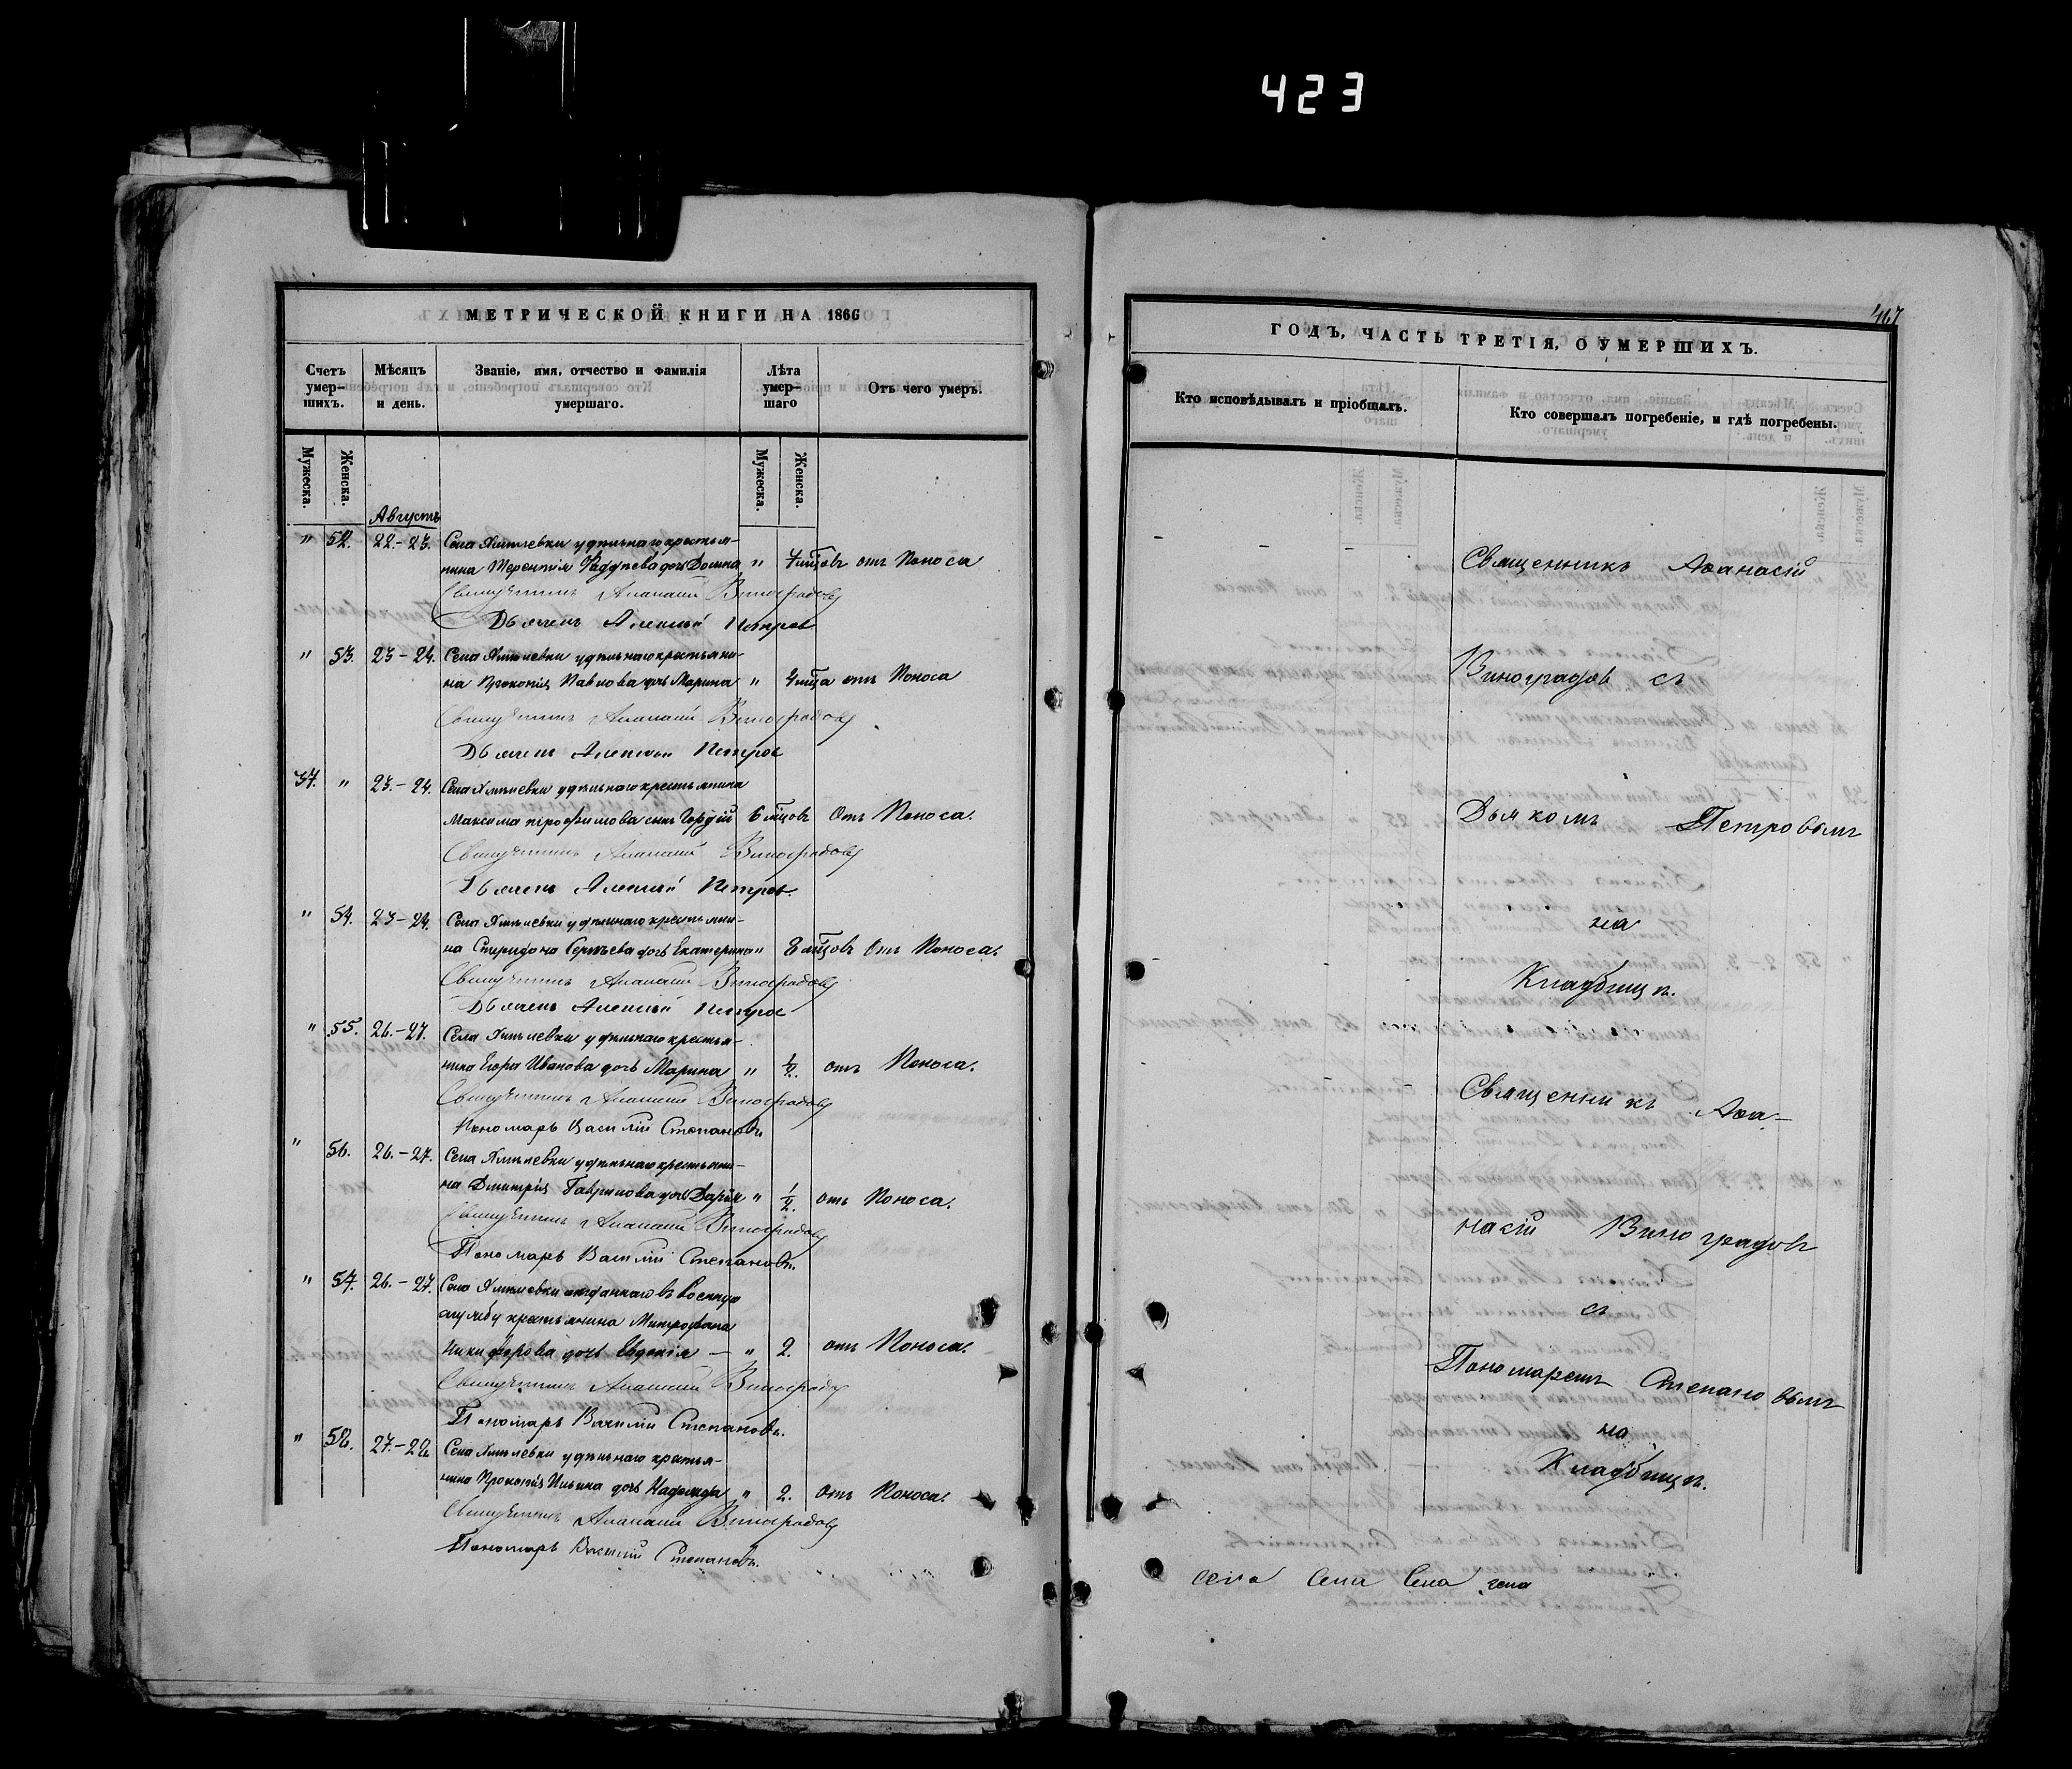 423
МЕТРИЧЕСКОЙ КНИГИ НА 1866
Счетъ умер-шихъ.
Мѣсяцъ и день.
Званіе, имя, отчество и фамилія умершаго.
Лѣта умер-шаго
Отъ чего умеръ.
Мужеска.
Женска.
Мужеска.
Женска.
Августъ
" 52. 22.-23. Села Хмѣлевки удѣльнаго крестья-
нина Терентія Фадѣева дочь Домна " 7 мцовъ отъ Поноса
Священникъ Афанасій Виноградовъ
Дьячекъ Алексѣй Петровъ
" 53. 23-24. Села Хмѣлевки удѣльнаго крестьяни-
на Прокопія Павлова дочь Марина " 4 мца отъ Поноса
Священникъ Афанасій Виноградовъ
Дьячекъ Алексѣй Петровъ
37. " 23.-24. Села Хмѣлевки удѣльнаго крестьянина
Максима Трофимова сынъ Гордѣй 6 мцовъ Отъ Поноса.
Священникъ Афанасій Виноградовъ
Дьячекъ Алексѣй Петровъ.
" 54. 23-24. Села Хмѣлевки удѣльнаго крестьяни-
на Спиридона Сергѣева дочь Екатерина " 8 мцовъ Отъ Поноса.
Священникъ Афанасій Виноградовъ
Дьячекъ Алексѣй Петровъ
" 55. 26.-27. Села Хмѣлевки удѣльнаго крестья-
нина Егора Иванова дочь Марина " 1/2. отъ Поноса.
Священникъ Афанасій Виноградовъ
Пономарь Василій Степановъ
" 56. 26.-27. Села Хмѣлевки удѣльнаго крестьяни-
на Дмитрія Гаврилова дочь Дарья " 1/2. отъ Поноса.
Священникъ Афанасій Виноградовъ
Пономарь Василій Степановъ.
" 57. 26.-27. Села Хмѣлевки отданнаго въ военную
службу крестьянина Митрофана
Никифорова дочь Евдокія — " 2. отъ Поноса.
Священникъ Афанасій Виноградовъ
Пономарь Василій Степановъ.
" 58. 27.-28. Села Хмѣлевки удѣльнаго крестья-
нина Прокопія Ильина дочь Надежда " 2. Отъ Поноса.
Священникъ Афанасій Виноградовъ
Пономарь Василій Степановъ.
467
ГОДЪ, ЧАСТЬ ТРЕТІЯ, О УМЕРШИХЪ.
Кто исповѣдывалъ и пріобщалъ.
Кто совершалъ погребеніе, и гдѣ погребены.
Священникъ Аѳанасій
Виноградовъ съ
Дьячкомъ Петровымъ
на
Кладбищѣ.
Священникъ Аѳа-
насій Виноградовъ
съ
Пономаремъ Степановымъ
на
Кладбищѣ.
села Села Села села